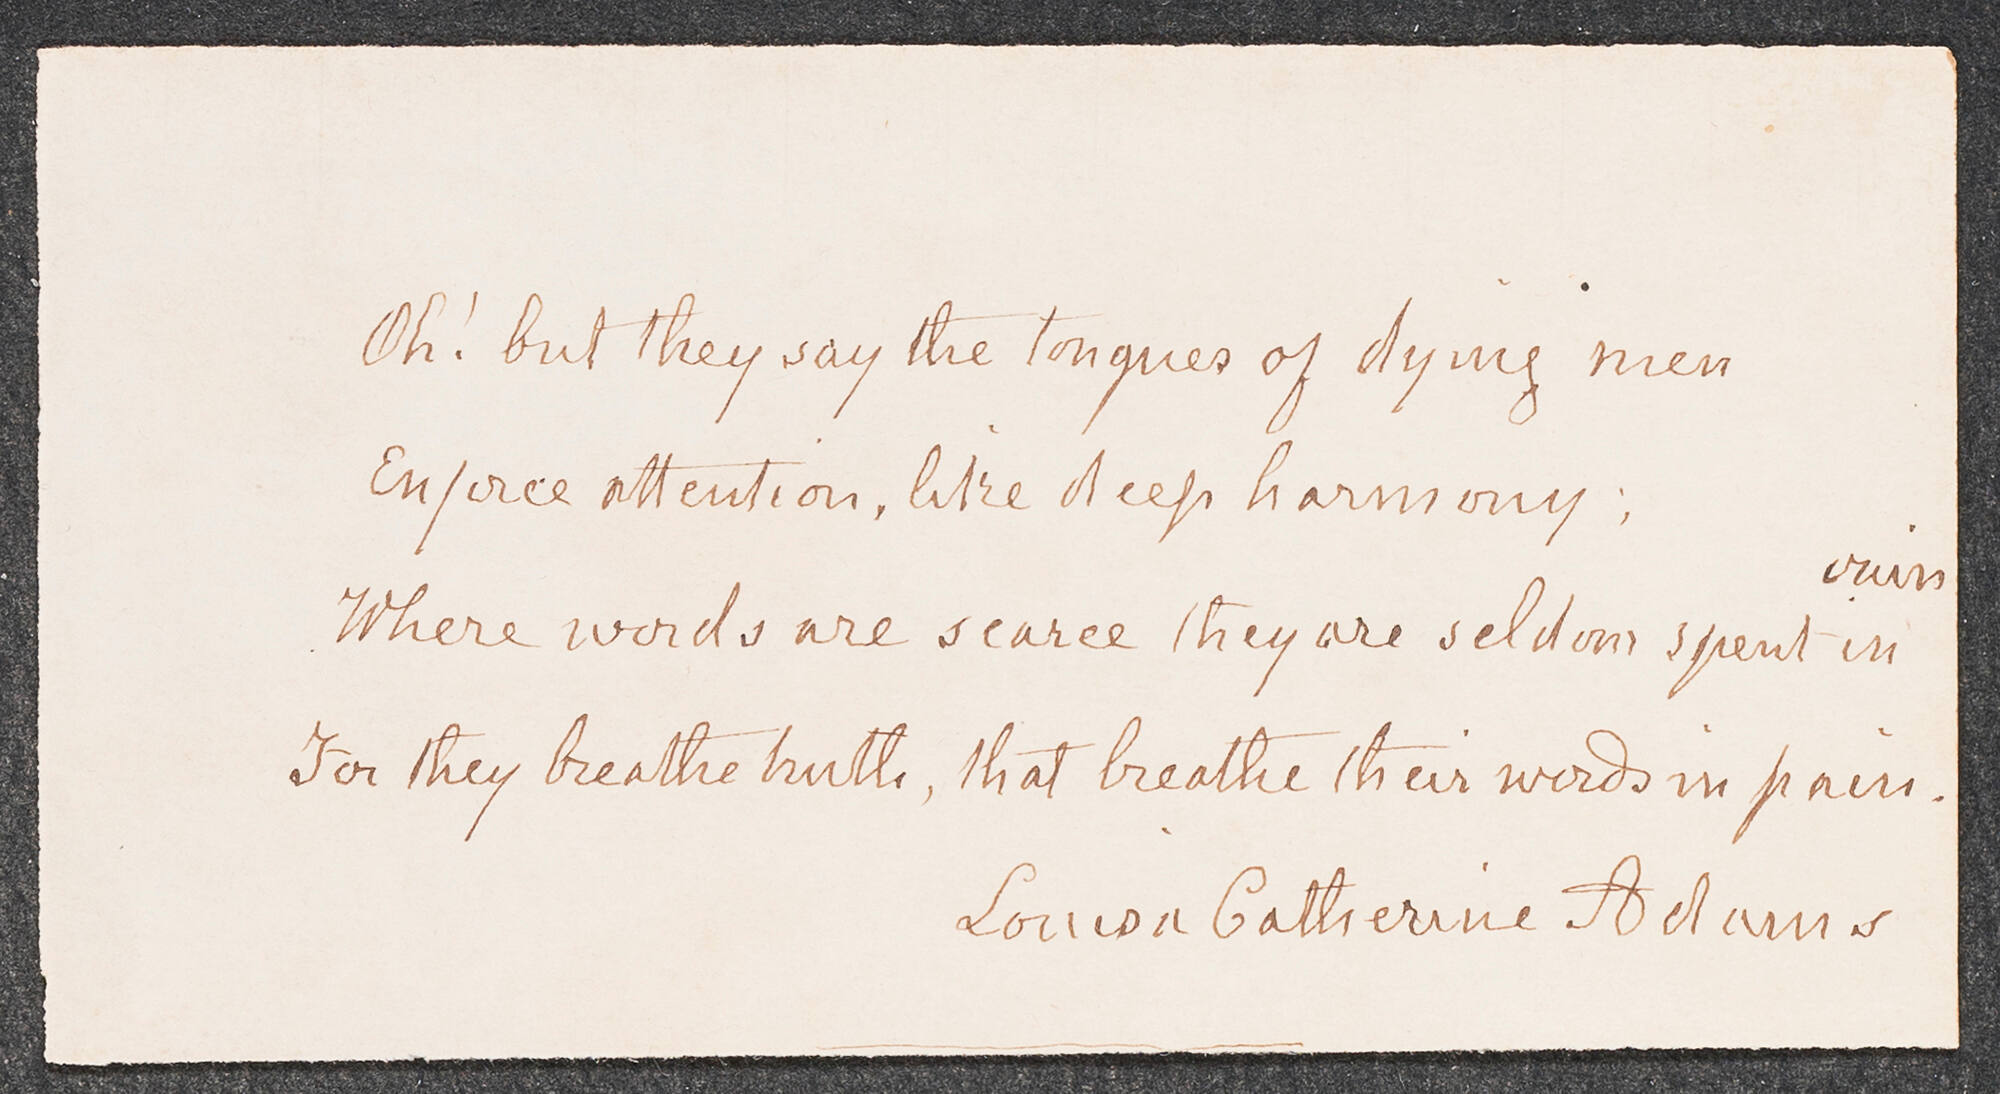 Oh! but they say the tongues of dying men
Enforce attention, like deep harmony;
Where words are scarce they are seldom spent in vain
For they breathe truth, that breathe their words in pain.
Louisa Catherine Adams